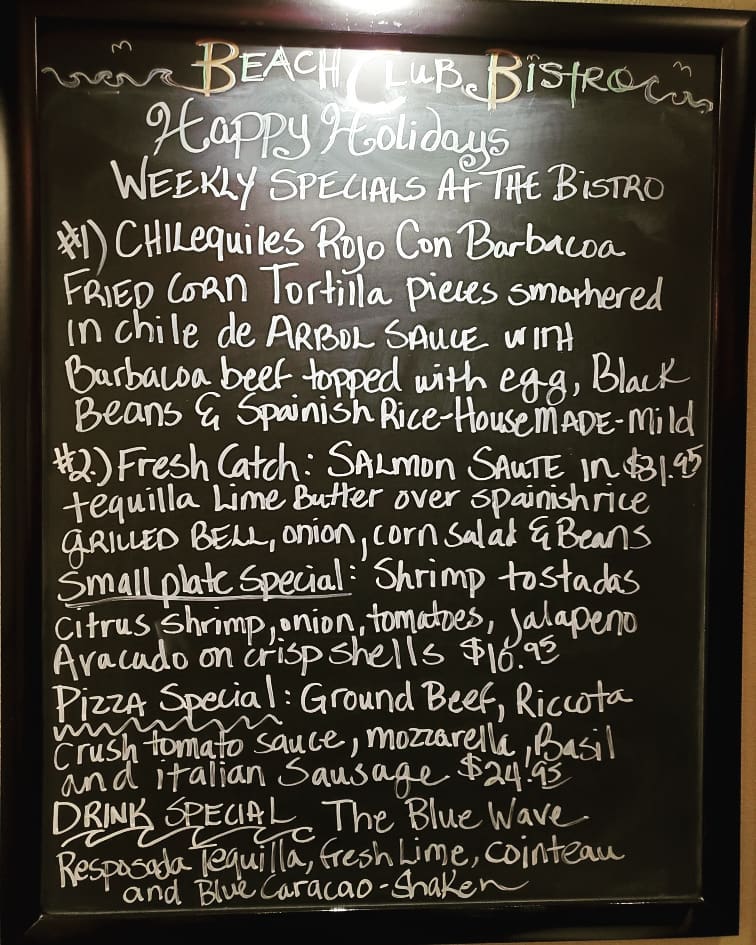 BEACH CLUB BISTRO
Happy Holidays
WEEKLY SPECIALS At THE BISTRO
#1) CHILequiles Rojo Con Barbacoa
FRIED CORN Tortilla pieces smothered
in chile de ARBOL SAUCE WITH
Barbacoa beef topped with egg, Black
Beans & Spainish Rice-HousemADE-Mild
#2.) Fresh Catch: SALMON SAUTE IN $31.95
tequilla Lime Butter over spainish rice
GRILLED BELL, onion, corn Salad & Beans
Small plate Special: Shrimp tostadas
citrus shrimp, onion, tomatoes, Jalapeno
Avacado on crisp shells $16.95
PIZZA Special: Ground Beef, Riccota
Crush tomato sauce, mozzarella, Basil
and italian Sausage $24.95
DRINK SPECIAL The Blue Wave
Resposada Tequilla, fresh Lime, cointeau
and Blue Caracao-Shaken